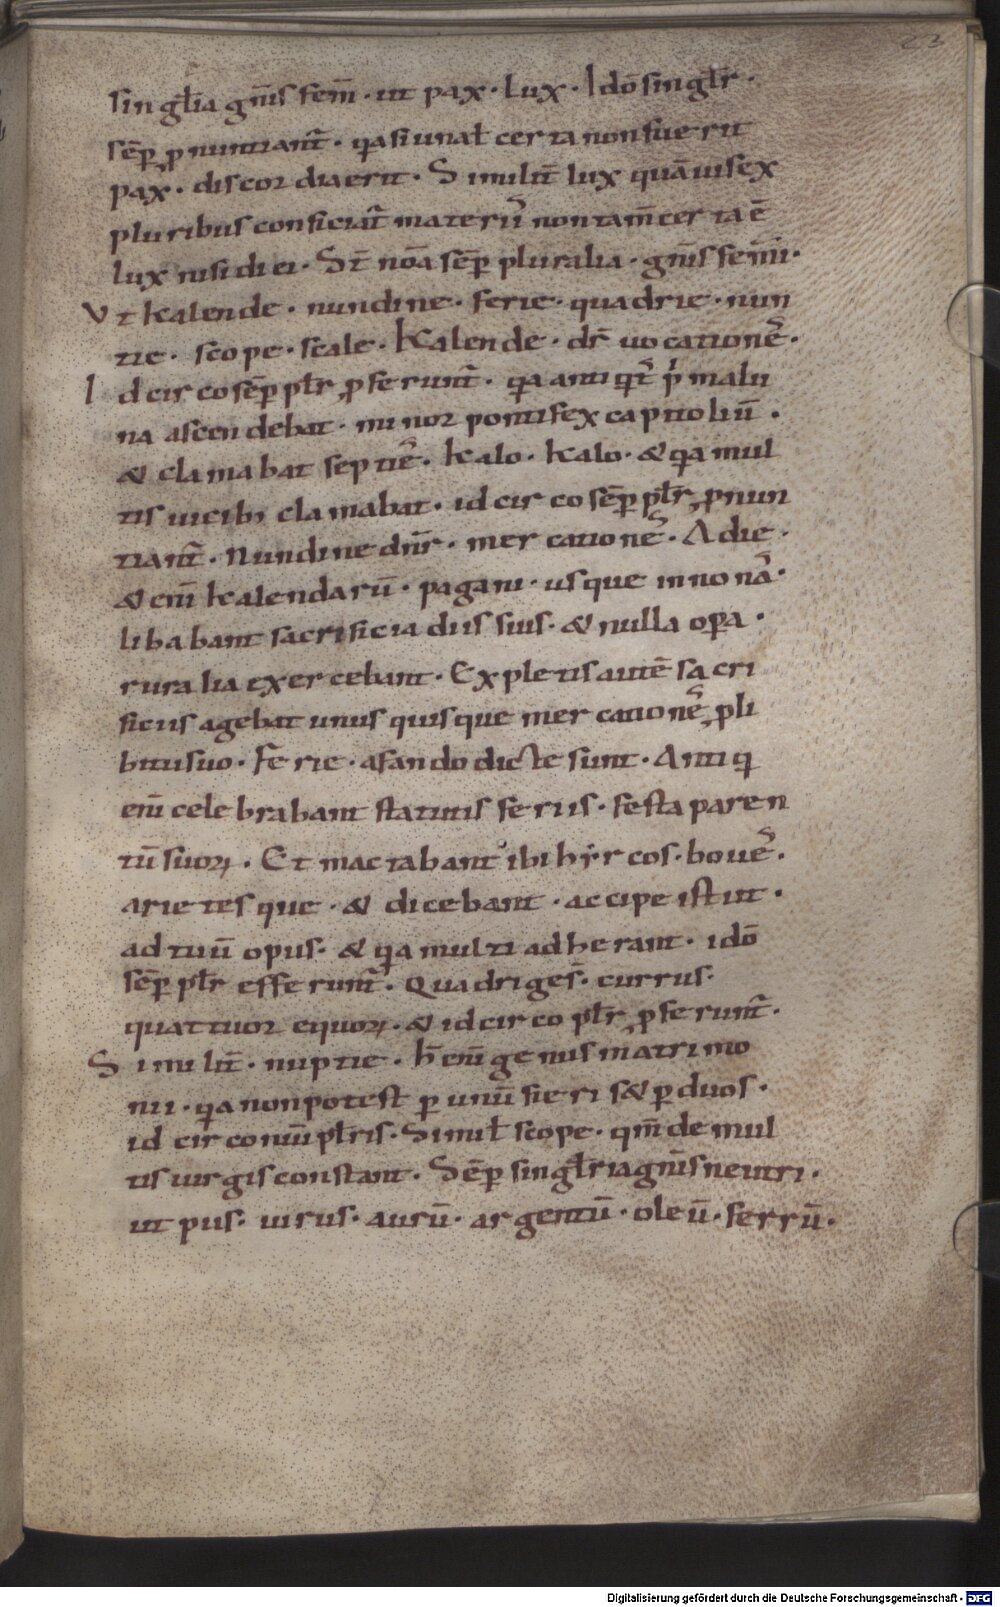 23
singl̄ia gn̄is fem̄ · ut pax · Lux · Idō singl̄r ·
sēp ꝓnuntiant̄ · qasi unal̄ certa non fuerit
pax · discordia erit · Similit̄ lux quāuis ex
pluribus conficiat̄ materiis̄ non tam̄ certa ē
lux nisi diei · St̄ nōa sēp pluralia · gn̄is fem̄i ·
Vt kalende · nundine · ferie · quadrie · nun
tie · scope · scale · Kalende · dr̄ uocationē ·
Idcirco sēp pl̄r ꝓferunt̄ · qa antiqt̄ p̄ malu
na ascendebat · minor pontifex capitoliū ·
& clamabat septiē · kalo · kalo · & qa mul
tis uicibꝫ clamabat · idcirco sēp pl̄r ꝓnun
tiant̄ · Nundine dn̄r · mercationē · A die ·
& eni̅ kalendarū · pagani · usque in nonā ·
libabant sacrificia diis suis · & nulla opa ·
ruralia exercebant · Expletis autē sacri
ficiis agebat unus quisque mercationē ꝓ li
bitu suo · Ferie · a fando dicte sunt · Antiq
eni̅ celebrabant statutis feriis · festa paren
tū suoꝝ · Et mactabant ibi hyrcos · bouē ·
arietesque · & dicebant · accipe istut ·
ad tuū opus · & qia multi adherant · idō
sēp pl̄r efferunt̄ · Quadrigē · currus ·
quattuor equoꝝ · & idcirco pl̄r ꝓferunt̄ ·
Similit̄ · nuptie · h̄ eni̅ genus matrimo
nii · qia non potest p unū fieri s& p duos ·
idcirco nūi pl̄ris · Simil̄ scope · qm̄ de mul
tis uirgis constant · Sēp singl̄ria gn̄is neutri ·
ut pus · uirus · aurū · argentū · oleū · ferrū ·
Digitalisierung gefördert durch die Deutsche Forschungsgemeinschaft - DFG